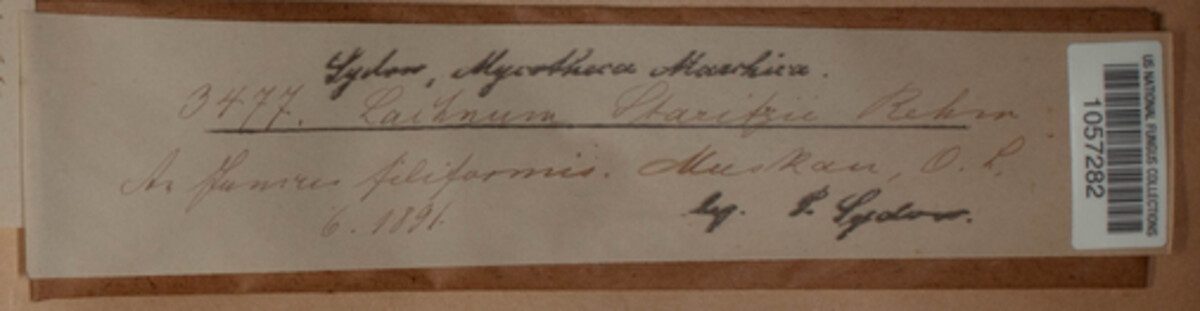 Sydow, Mycotheca Marchica.
3477. Lachnum Staritzii Rehm
An Juncus filiformis. Muskau, O. L.
6. 1891.
leg. P. Sydow.
US NATIONAL FUNGUS COLLECTIONS
1057282